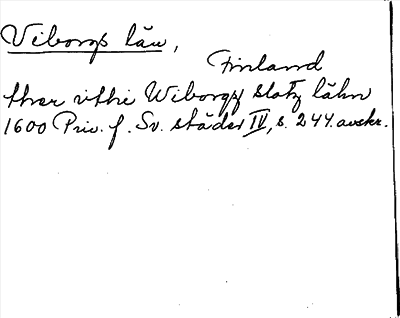 Viborgs län,
Finland
thær vthi Wiborgz slotz lähn
1600 Priv. f. Sv. städer IV, s. 244. avskr.